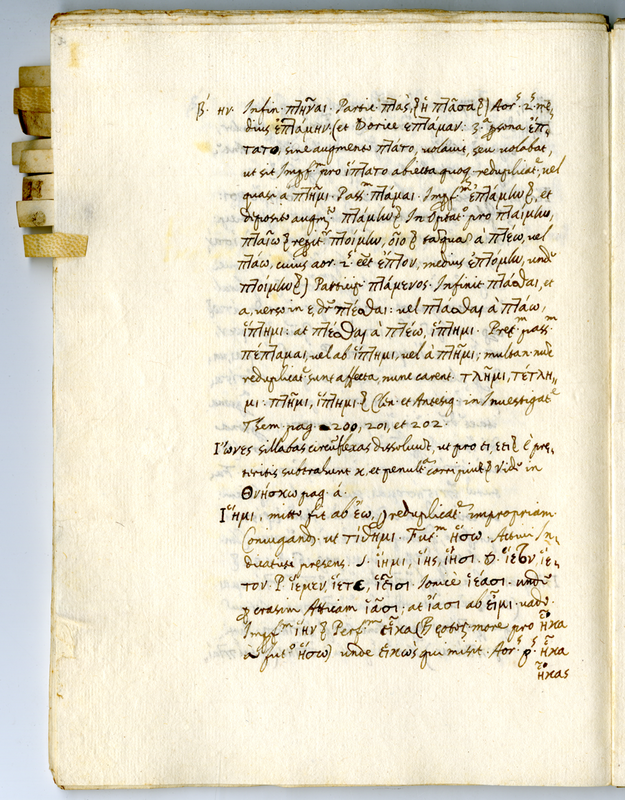 β. ην. Infin. πλῆναι. Partic. πλὰς, (ἢ πλᾶσα) Aor.ˢ 2.ˢ me-
dius ἐπλάμην. (et Dorice ἐπλάμαν. 3.ª psona ἔπ-
τατο, sine augmento πλάτο, volavit, seu volabat,
ut sit Impf.ᵐ pro ἵπλατο abiecta quoq. reduplicat.ᵉ vel
quasi a πλῆμι. Pass.ᵐ πλάμαι. Impf.ᵐ ἐπλάμιω, et
deposito augm.º πλάμιω In Optat.º pro πλαίμιω,
πλαῖο πλοίμιω, οῖο à πλέω, vel
πλάω, cuius aor. 2.ˢ ἔπλον, medius ἐπλόμιω, unde
πλοίμιω) Particip. πλάμενος. Infinit. πλάσθαι, et
a, verso in ε, πλέσθαι: vel πλάσθαι à πλάω,
ἵπλημι: at πλέσθαι à πλέω, ἵπλημι. Pret.ᵐ pass.ᵐ
πέπλαμαι, vel ab ἵπλημι, vel à πλῆμι; multa n. nunc
reduplicat.ᵉ sunt affecta, nunc carent. τλῆμι, τέτλη-
μι. πλῆμι, ἵπλημι et Antesig. in Investigat.ᵉ
Them. pag. 200, 201, et 202.
Ἴωνες sillabas circuflexas dissolvunt, ut pro ει, εϊ pre-
teritis subtrahunt κ, et penult.ᵐ corripiunt Vide in
Θνήσκω pag. á.
Ἵημι, mitto fit ab ἕω, reduplicat.ᵉ impropriam
Coniugand. ut τίθημι. Fut.ᵐ ἥσω. Activi In-
dicativi presens. S. ἵημι, ἵης, ἵησι. D. ἵετον, ἵε-
τον. P. ἵεμεν, ἵετε, ἱεῖσι. Ionicè ἱέασι. unde
p crasim Atticam ἱᾶσι; at ἴασι ab εἶμι. vado.
Impf.ᵐ ἵην Perf.ᵐ εἷκα (Βοιωτς more pro ἧκα
à fut.º ἥσω) unde εἱκὼς qui misit. Aor.ˢ p.ˢ ἧκα
ἧκας